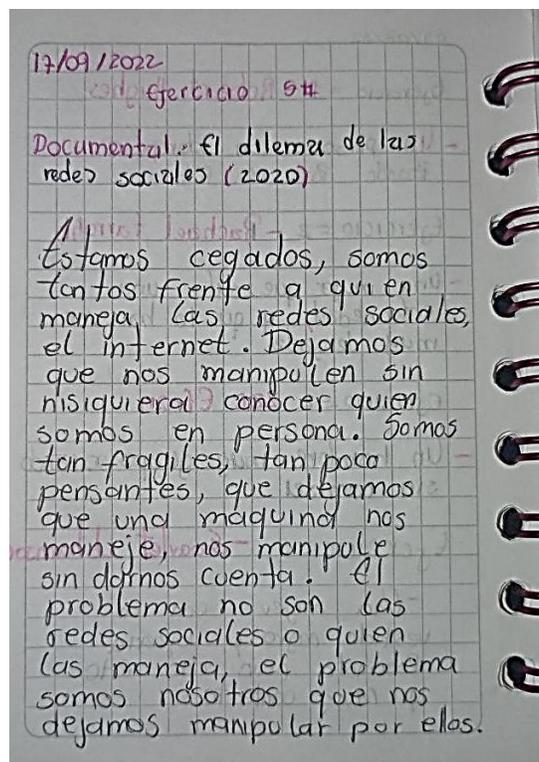 17/09/2022
Ejercicio 5#
Documental. El dilema de las
redes sociales (2020)
Estamos cegados, somos
tontos frente a quien
maneja, las redes sociales,
el internet. Dejamos
que nos manipulen sin
nisiquiera conocer quien
somos en persona. Somos
tan fragiles, tan poco
pensantes, que dejamos
que una maquina nos
maneje, nos manipule
sin darnos cuenta. El
problema no son las
redes sociales o quien
las maneja, el problema
somos nosotros que nos
dejamos manipular por ellos.